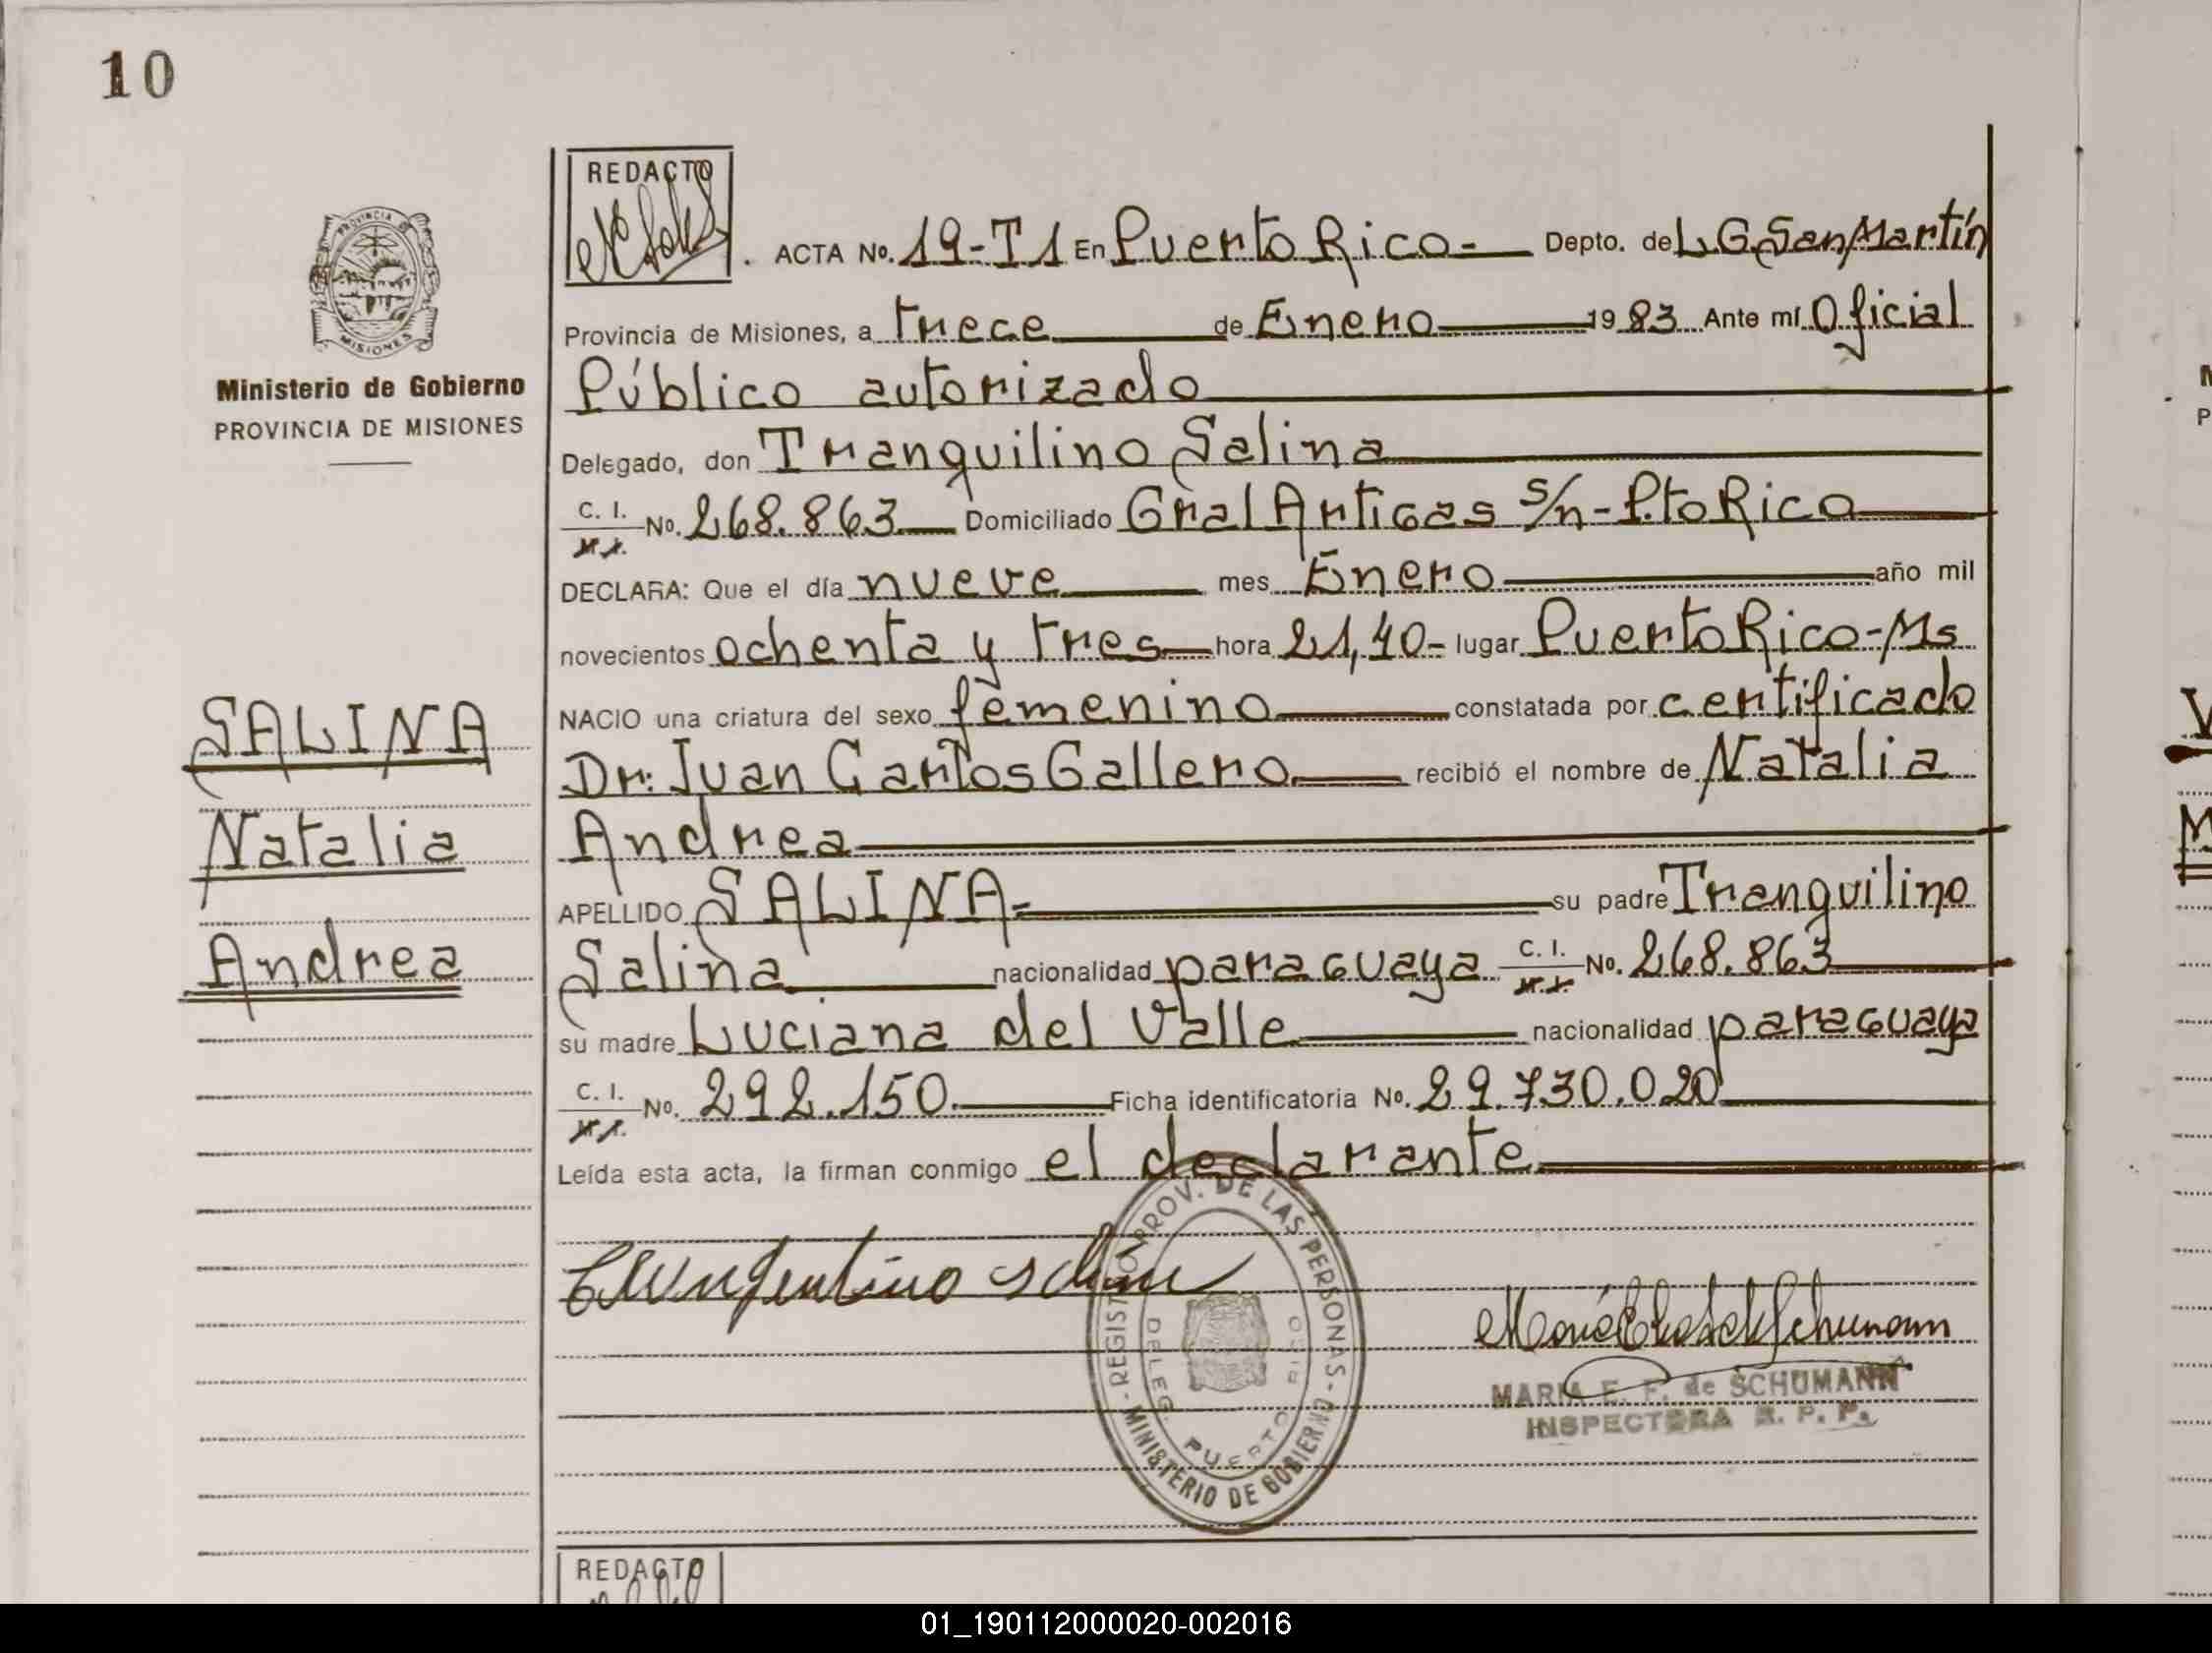 10
REDACTO
ACTA No. 19-T1 En Puerto Rico- Depto. de L.G.San Martín
Provincia de Misiones, a trece de Enero 1983 Ante mí Oficial
Público autorizado
Delegado, don Tranquilino Salina
C. I. No. 268.863 Domiciliado Gral Artigas s/n- Pto Rico
DECLARA: Que el día nueve mes Enero año mil
novecientos ochenta y tres hora 21,40- lugar Puerto Rico-Ms
NACIO una criatura del sexo femenino constatada por certificado
Dr: Juan Carlos Gallero recibió el nombre de Natalia
Andrea
APELLIDO SALINA- su padre Tranquilino
Salina nacionalidad paraguaya C. I. No. 268.863
su madre Luciana del Valle nacionalidad paraguaya
C. I. No. 292.150. Ficha identificatoria No. 29.730.020
Leída esta acta, la firman conmigo el declarante
PROVINCIA DE
MISIONES
Ministerio de Gobierno
PROVINCIA DE MISIONES
SALINA
Natalia
Andrea
REGISTRO PROV. DE LAS PERSONAS - MINISTERIO DE GOBIERNO
DELEG. PUERTO RICO
MARIA E. F. de SCHUMANN
INSPECTORA R. P. P.
REDACTO
01_190112000020-002016